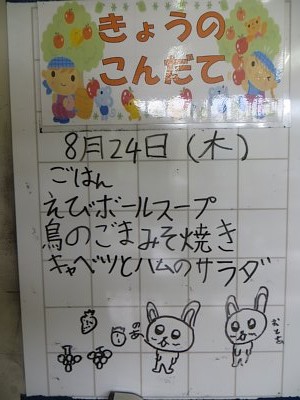 きょうの
こんだて
8月24日(木)
ごはん
えびボールスープ
鳥のごまみそ焼き
キャベツとハムのサラダ
のあ